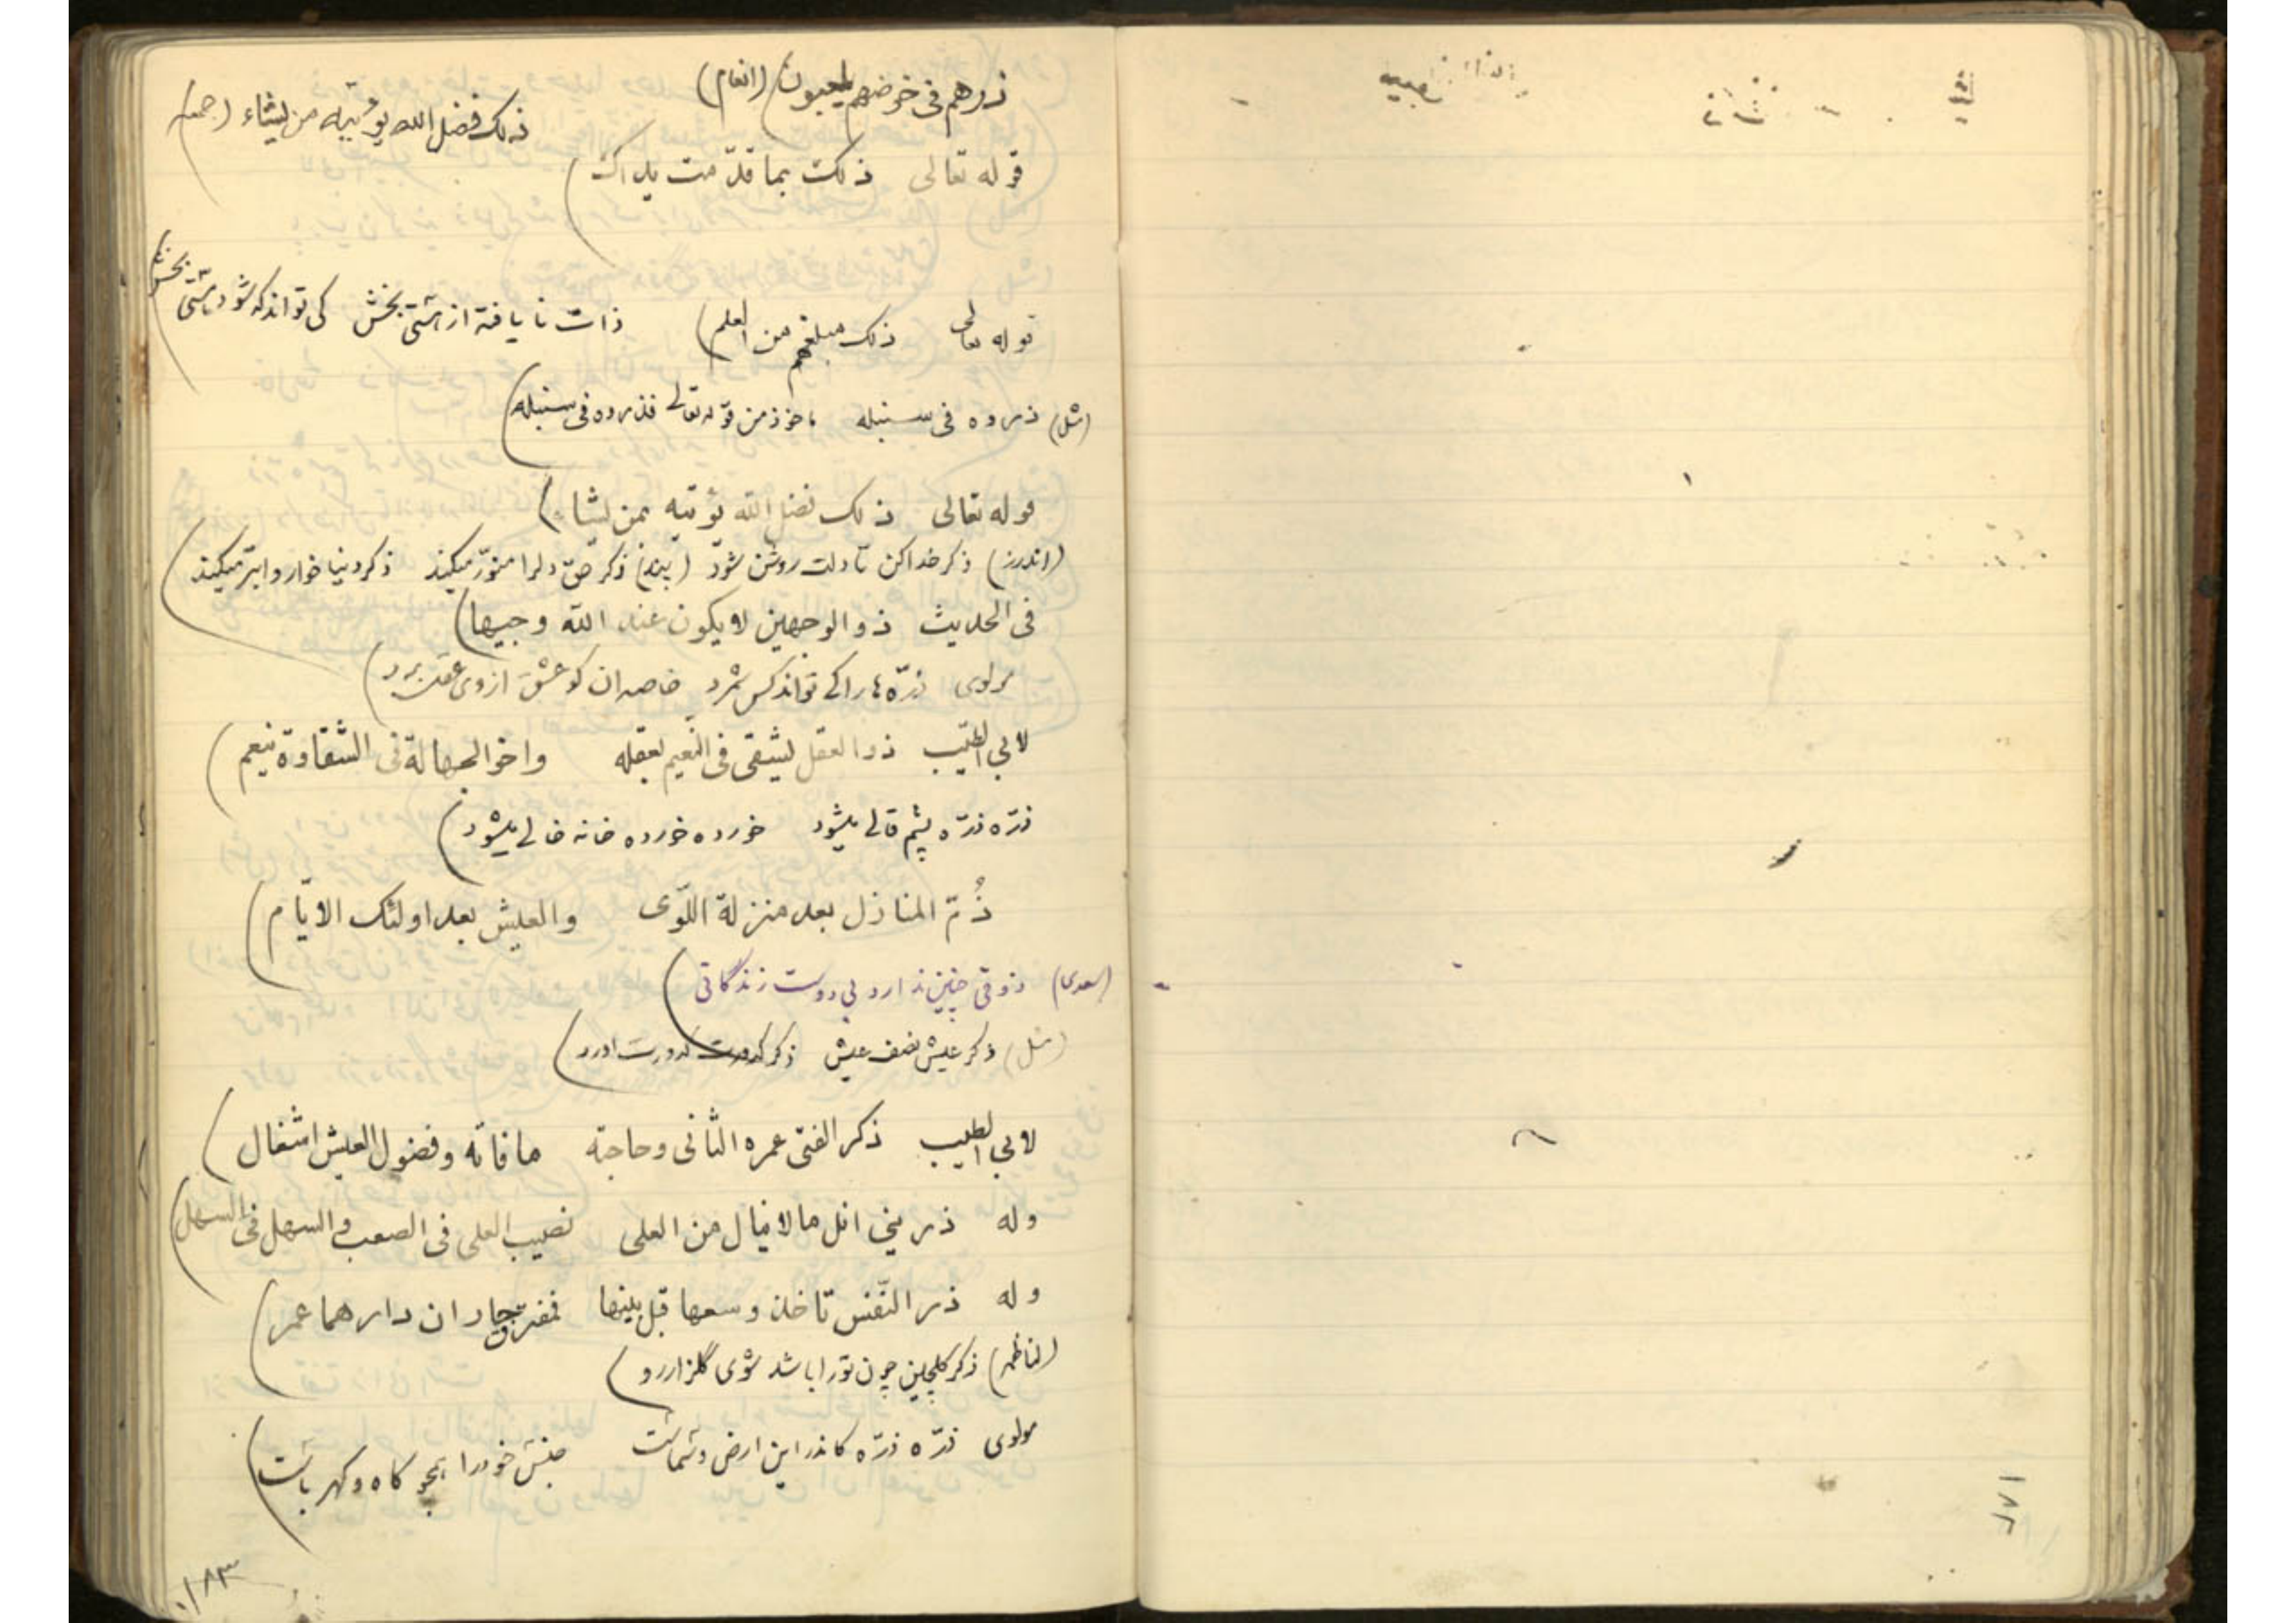 ذرهم فی خوضهم یلعبون (انعام)
ذلک فضل الله یؤتیه من یشاء (جمعه)
قوله تعالی ذلک بما قدّمت یداک
قوله تعالی ذلک مبلغهم من العلم ذات نایافته از هستی بخش کی تواند که شود هستی بخش
(مثل) ذروه فی سنبله ماخوذ من قوله تعالی فذروه فی سنبله
قوله تعالی ذلک فضل الله یؤتیه من یشاء
(اندرز) ذکر خدا کن تا دلت روشن شود (پند) ذکر حق دلرا منوّر میکند ذکر دنیا خوار و ابتر میکند
فی الحدیث ذو الوجهین لا یکون عند الله وجیها
مولوی ذرّه ها را کی تواند کس شمرد خاصه ان کو عشق از وی عقل برد
لابی الطیّب ذو العقل یشقی فی النعیم بعقله واخو الجهالة فی الشقاوة ینعم
ذرّه ذرّه پشم قالی میشود خورده خورده خانه خالی میشود
ذُمّ المنازل بعد منزلة اللّوی والعیش بعد اولئک الایّام
(سعدی) ذوقی چنین ندارد بی دوست زندگانی
(مثل) ذکر عیش نصف عیش ذکر کدورت کدورت اورد
لابی الطیب ذکر الفتی عمره الثانی وحاجته ما فاته وفضول العیش اشغال
وله ذرینی انل ما لا ینال من العلی نصیب العلی فی الصعب والسهل فی السهل
وله ذر النّفس تاخذ وسعها قبل بینها فمفترق جاران دارهما عمر
(لناظمه) ذکر گلچین چون تو را باشد سوی گلزار رو
مولوی ذرّه ذرّه کاندر این ارض و سماست جنس خود را همچو کاه و کهرباست
۱۸۳
۱۸۲